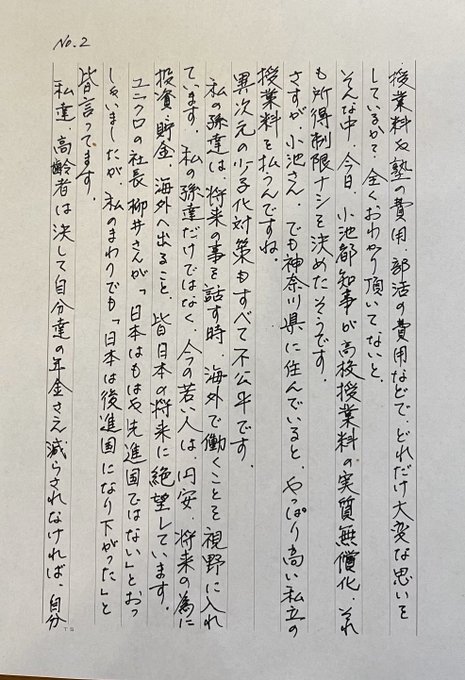 No.2
授業料や塾の費用、部活の費用などで、どれだけ大変な思いを
しているか、全くおわかり頂いてないと。
そんな中、今日、小池都知事が高校授業料の実質無償化、それ
も所得制限ナシを決めたそうです。
さすが、小池さん、でも神奈川県に住んでいると、やっぱり高い私立の
授業料を払うんですね。
異次元の少子化対策もすべて不公平です。
私の孫達は、将来の事を話す時、海外で働くことを視野に入れ
ています。私の孫達だけではなく、今の若い人は、円安、将来の為に
投資、貯金、海外へ出ること、皆日本の将来に絶望しています。
ユニクロの社長、柳井さんが、「日本はもはや先進国ではない」とおっ
しゃいましたが、私のまわりでも「日本は後進国になり下がった」と
皆言ってます。
私達、高齢者は決して自分達の年金さえ減らされなければ、自分